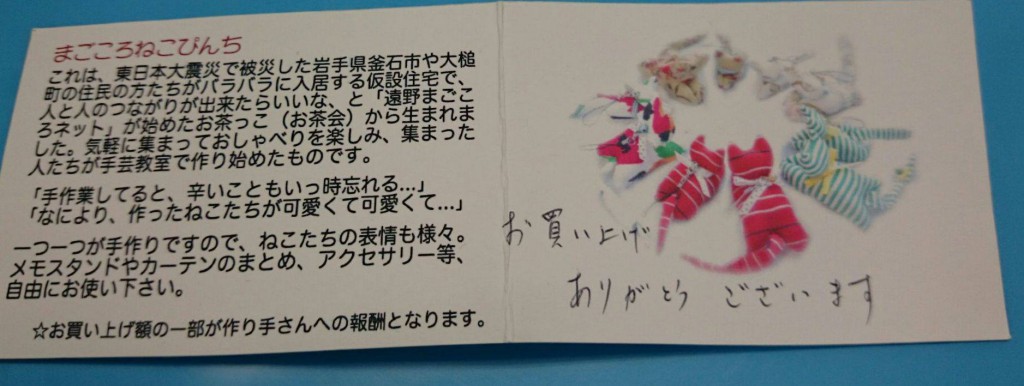 まごころねこぴんち
これは、東日本大震災で被災した岩手県釜石市や大槌
町の住民の方たちがバラバラに入居する仮設住宅で、
人と人のつながりが出来たらいいな、と「遠野まごこ
ろネット」が始めたお茶っこ（お茶会）から生まれま
した。気軽に集まっておしゃべりを楽しみ、集まった
人たちが手芸教室で作り始めたものです。
「手作業してると、辛いこともいっ時忘れる…」
「なにより、作ったねこたちが可愛くて可愛くて…」
一つ一つが手作りですので、ねこたちの表情も様々。
メモスタンドやカーテンのまとめ、アクセサリー等、
自由にお使い下さい。
☆お買い上げ額の一部が作り手さんへの報酬となります。
お買い上げ
ありがとう ございます